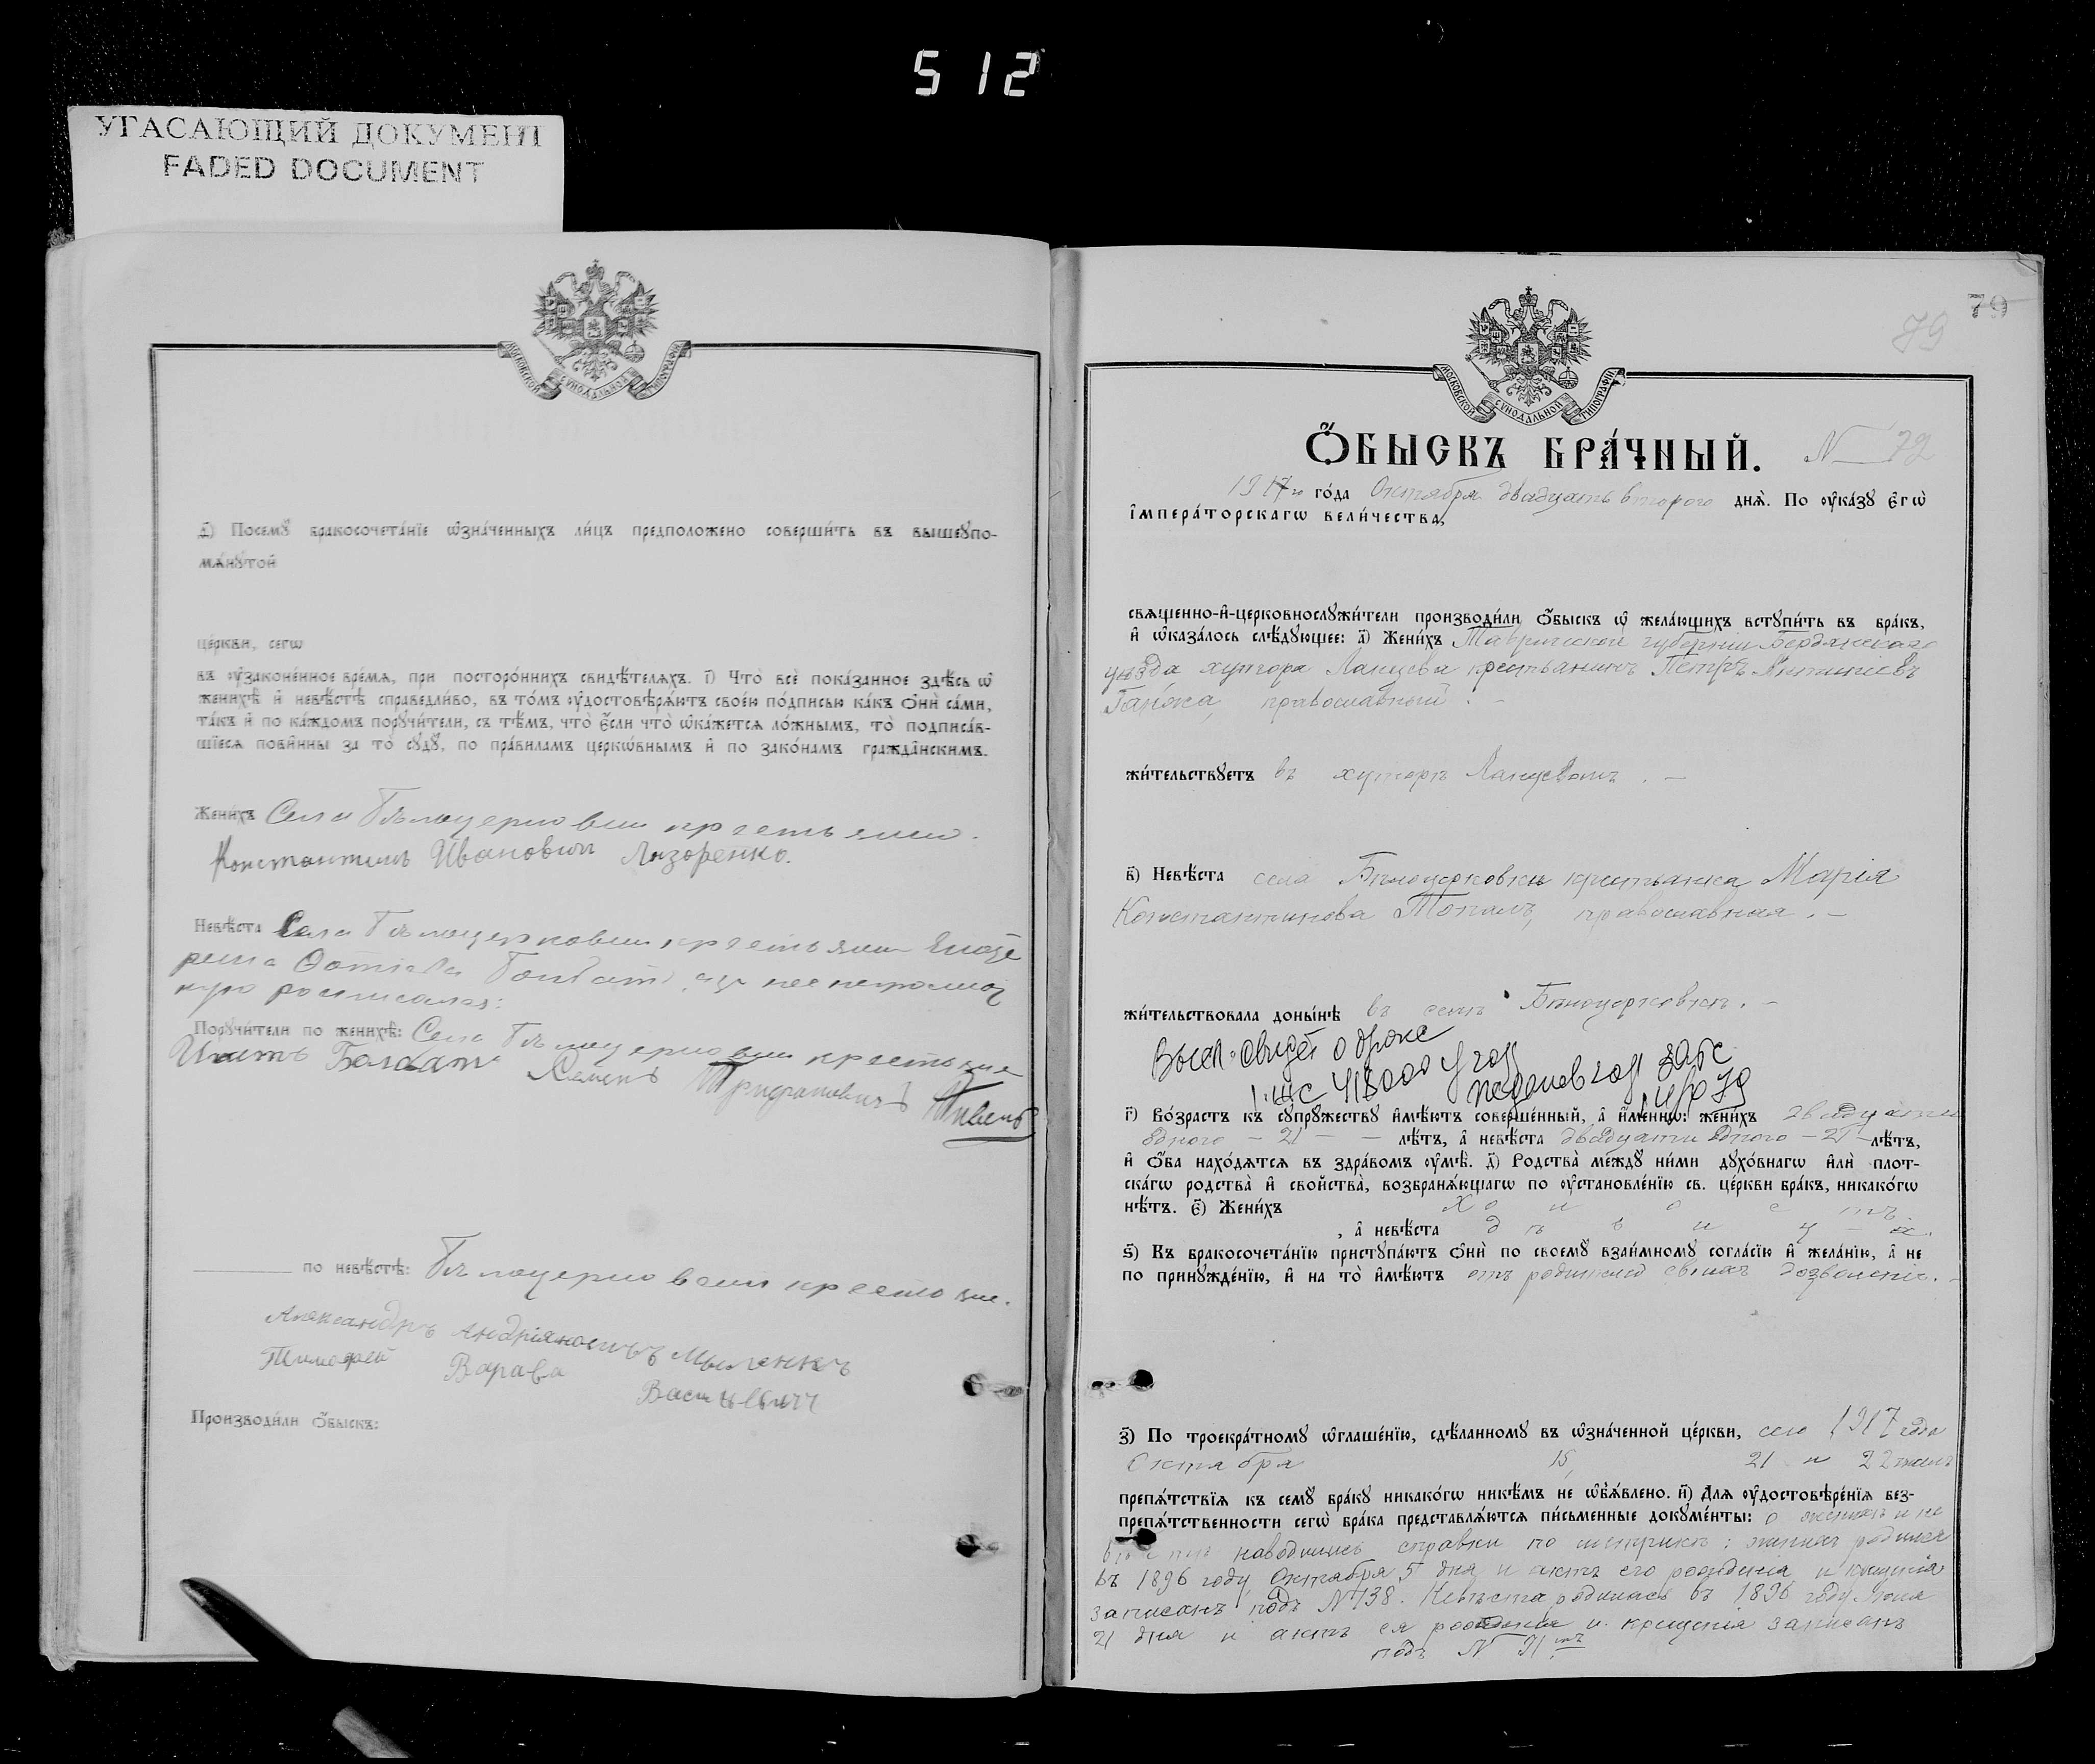 512
УГАСАЮЩИЙ ДОКУМЕНТ
FADED DOCUMENT
МОСКОВСКОЙ СѴНОДАЛЬНОЙ ТИПОГРАФІИ
д҃і) Посемꙋ бракосочета́нїе ѡ҆зна́ченныхъ ли́цъ предположено соверши́ть въ вышеꙋпо-
мѧ́нꙋтой
це́ркви, сегѡ
въ ᲂу҆зако́ненное вре́мѧ, при посторо́ннихъ свидѣ́телѧхъ. і҃) Что̀ всѐ пока́занное здѣ́сь ѡ҆
женихѣ̀ и҆ невѣ́стѣ справедли́во, въ то́мъ ᲂу҆достовѣрѧ́ютъ свое́ю по́дписью ка́къ ѻ҆нѝ са́ми,
та́къ и҆ по ка́ждомъ порꙋчи́тели, съ тѣ́мъ, что̀ є҆́сли что̀ ѡ҆ка́жетсѧ ло́жнымъ, то̀ подписа́в-
шїесѧ пови́нны за то̀ сꙋдꙋ̀, по пра́виламъ церкѡ́внымъ и҆ по зако́намъ гражда́нскимъ.
Жени́хъ Села Бѣлоцерковки крестьянин
Константинъ Ивановичъ Лазоренко.
Невѣ́ста Села Бѣлоцерковки крестьянка
Болбатъ, за нее неграмот
ную росписался:
Порꙋчи́тели по женихѣ̀: Села Бѣлоцерковки крестьяне
Игнатъ Болбатъ Семенъ Трифановичъ Пивень
по невѣ́стѣ: Бѣлоцерковки крестьяне.
Александръ Андріяновичъ
Тимофей Варава
Васильевич
Производи́ли ѻ҆́быскъ:
79
79
МОСКОВСКОЙ СѴНОДАЛЬНОЙ ТИПОГРАФІИ
Ѻ҆́БЫСКЪ БРА́ЧНЫЙ. N 72
1917го го́да Октября двадцать второго днѧ̀. По ᲂу҆ка́зꙋ є҆гѡ̀
і҆мпера́торскагѡ вели́чества,
свѧще́нно-и҆-церковнослꙋжи́тели производи́ли ѻ҆́быскъ ѡ҆ жела́ющихъ встꙋпи́ть въ бра́къ,
и҆ ѡ҆каза́лось слѣ́дꙋющее: а҃) Жени́хъ Таврической губерніи Бердянскаго
уѣзда хутора Ланцева крестьянинъ Петръ Антиніевъ
Ганжа, православный. -
жи́тельствꙋетъ въ хуторѣ Ланцевомъ. -
в҃) Невѣ́ста села Бѣлоцерковки крестьянка Марія
Константинова Топалъ, православная. -
жи́тельствовала доны́нѣ въ селѣ Бѣлоцерковкѣ. -
Высл. свидет о браке
г҃) Во́зрастъ къ сꙋпрꙋ́жествꙋ и҆мѣ́ютъ совершє́нный, а҆ и҆́менно: жени́хъ двадцати
одного - 21 - - лѣ́тъ, а҆ невѣ́ста двадцати одного - 21 - лѣ́тъ,
и҆ ѻ҆́ба нахо́дѧтсѧ въ здра́вомъ ᲂу҆мѣ̀. д҃) Родства̀ междꙋ̀ ни́ми дꙋхо́внагѡ и҆лѝ плот-
ска́гѡ родства̀ и҆ сво́йства̀, возбранѧ́ющагѡ по ᲂу҆становле́нїю св. це́ркви бра́къ, никако́гѡ
нѣ́тъ. є҃) Жени́хъ холостъ
, а҆ невѣ́ста дѣвица.
ѕ҃) Къ бракосочета́нїю пристꙋпа́ютъ ѻ҆нѝ по своемꙋ̀ взаи́мномꙋ согла́сїю и҆ жела́нїю, а҆ не
по принꙋжде́нїю, и҆ на то̀ и҆мѣ́ютъ отъ родителей своихъ дозволеніе. -
з҃) По троекра́тномꙋ ѡ҆глаше́нїю, сдѣ́ланномꙋ въ ѡ҆зна́ченной це́ркви, сего 1917 года
Октября 15, 21 и 22 чиселъ
препѧ́тствїѧ къ семꙋ̀ бра́кꙋ никако́гѡ никѣ́мъ не ѡ҆б̾ѧ́влено. и҃) Длѧ ᲂу҆достовѣре́нїѧ без-
препѧ́тственности сегѡ̀ бра́ка представлѧ́ютсѧ пи́сьменные докꙋме́нты: о женихѣ и не
вѣстѣ наводились справки по метрикѣ: женихъ родился
въ 1896 году Октября 5 дня и актъ его рожденія и крещенія
записанъ подъ N 138. Невѣста родилась въ 1896 году Июня
21 дня и актъ ея рожденія и крещенія записанъ
подъ N